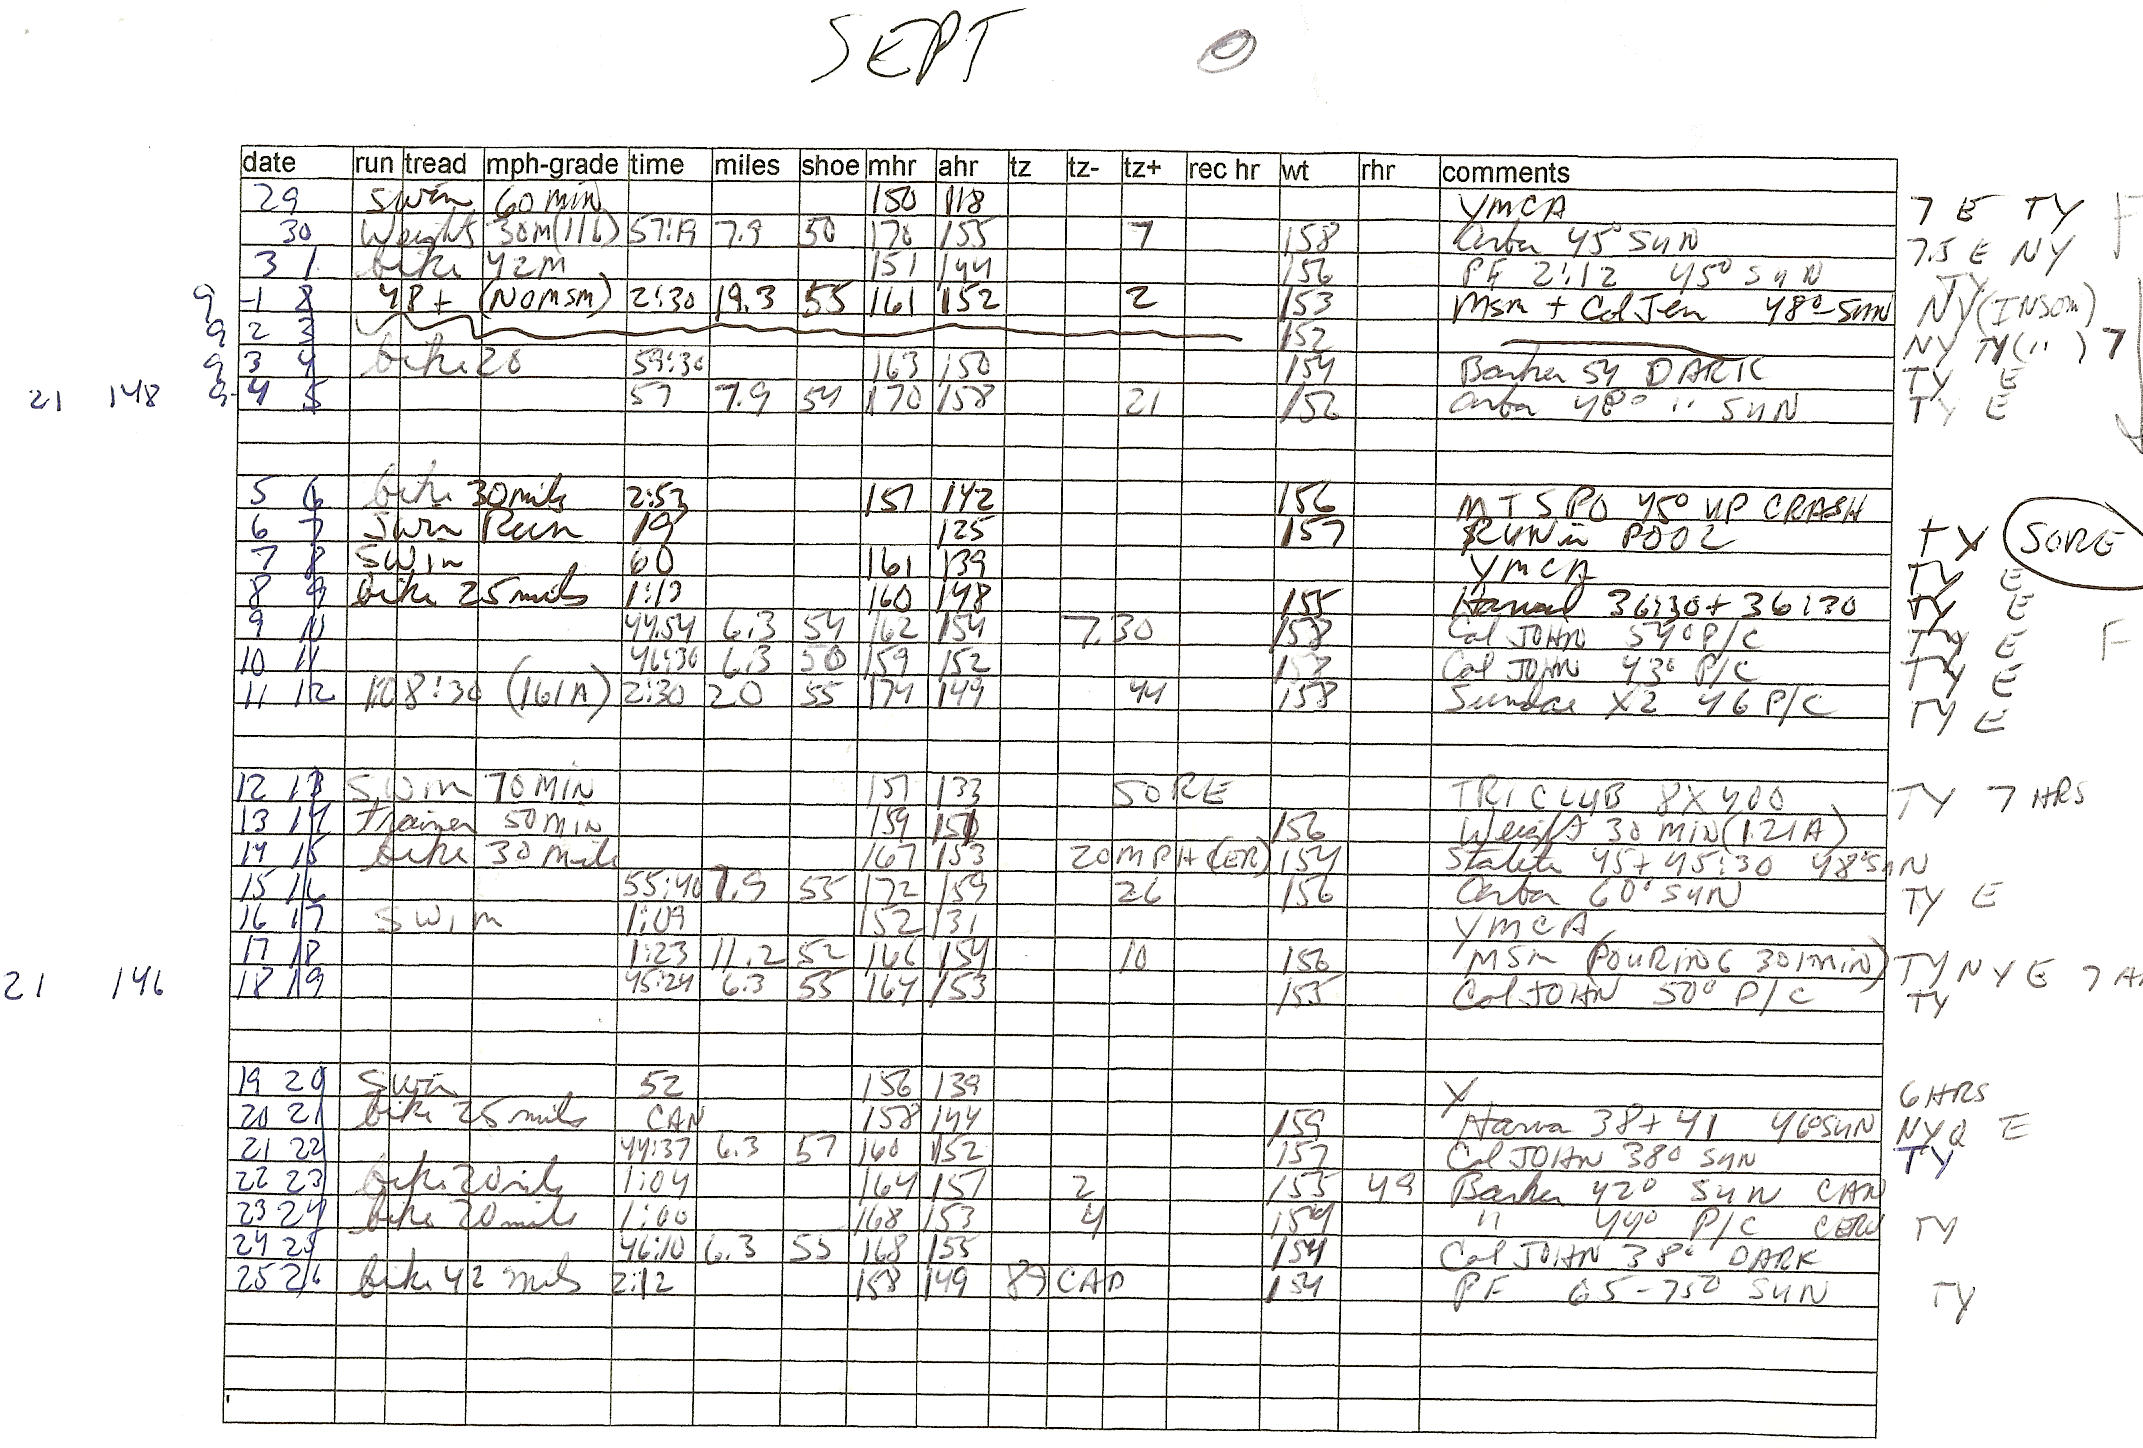 SEPT
date run tread mph-grade time miles shoe mhr ahr tz tz- tz+ rec hr wt rhr comments
29 swim 60 min 150 118 YMCA 7 E TY F
30 Weights 30M 57:19 7.9 50 170 155 7 158 45° SUN 7.5 E NY
3 1 bike 42M 151 144 156 PF 2:12 45° SUN TY
9 -1 8 48+ (NO MSM) 2:30 19.3 55 161 152 2 153 Msm + Col Jen 48° SUN NY (INSOM)
9 2 3 152 NY TY (") 7
9 3 4 bike 20 59:30 163 150 154 Barker 54 DARK TY E
21 148 9- 4 5 57 7.9 54 170 158 21 152 48° " SUN TY E
5 6 bike 30 mils 2:53 157 142 156 MTSPO 45° UP CRASH
6 7 Swim Run 19 125 157 RUN in POOL TY SORE
7 8 SWIM 60 161 139 YMCA TY E
8 9 bike 25 mils 1:13 160 148 155 36:30 + 36:30 TY E
9 10 44:54 6.3 54 162 154 7.30 158 Col JOHN 54° P/C TY E F
10 11 46:30 6.3 50 159 152 Col JOHN 43° P/C TY E
11 12 8:30 (161A) 2:30 20 55 174 149 44 158 Sundae X2 46 P/C TY E
12 13 SWIM 70 MIN 157 133 SORE TRI CLUB 8X400 TY 7 HRS
13 14 trainer 50 MIN 159 151 156 Weight 30 MIN (121A)
14 15 bike 30 mile 167 153 20 MPH (CER) 154 45+45:30 48° SUN
15 16 55:40 7.9 55 172 159 26 156 60° SUN TY E
16 17 SWIM 1:09 152 131 YMCA
17 18 1:23 11.2 52 166 154 10 156 MSM (POURING 30 MIN) TY NY E
21 146 18 19 45:24 6.3 55 164 153 155 Col JOHN 50° P/C TY
19 20 Swim 52 156 139 Y 6 HRS
20 21 bike 25 mils CAN 158 144 159 38+41 46° SUN NYQ E
21 22 44:37 6.3 57 160 152 157 Col JOHN 38° SUN TY
22 23 bike 20 mils 1:04 164 157 2 155 49 Barker 42° SUN CAN
23 24 bike 20 mils 1:00 168 153 4 154 " 44° P/C CERV TY
24 25 46:10 6.3 55 168 155 154 Col JOHN 38° DARK
25 26 bike 42 mils 2:12 158 149 87 CAD 154 PF 65-75° SUN TY